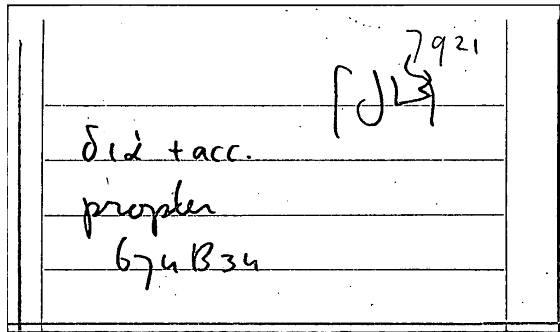 7921
διὰ +acc.
propter
674B34